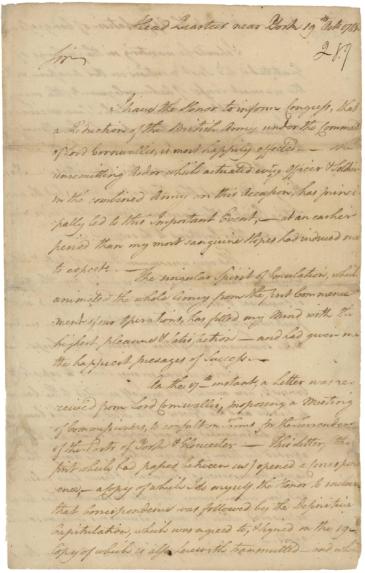 Head Quarters near York 19th Octo 1781
Sir,
I have the Honor to inform Congress, that
a Reduction of the British Army under the Command
of Lord Cornwallis, is most happily effected —
unremitting Ardor which actuated every Officer & Soldier
in the combined Army on this Occasion, has princi
pally led to this Important Event, — at an earlier
period than my most sanguine Hopes had induced me
to expect. —
The singular Spirit of Emulation, which
animated the whole Army from the first Commence
ment of our Operations, has filled my Mind with the
highest pleasure & Satisfaction — and had given me
the happiest presages of Success. —
On the 17th instant, a Letter was re
ceived from Lord Cornwallis, proposing a Meeting
of Commissioners, to consult on Terms for the surrender
of the Posts of York & Gloucester — This Letter, the
first which had passed between us) opened a Correspond
ence, — a Copy of which I do myself the Honor to enclose
that Correspondence was followed by the Definitive
Capitulation, which was agreed to, & signed on the 19
Copy of which is also herewith transmitted — and which